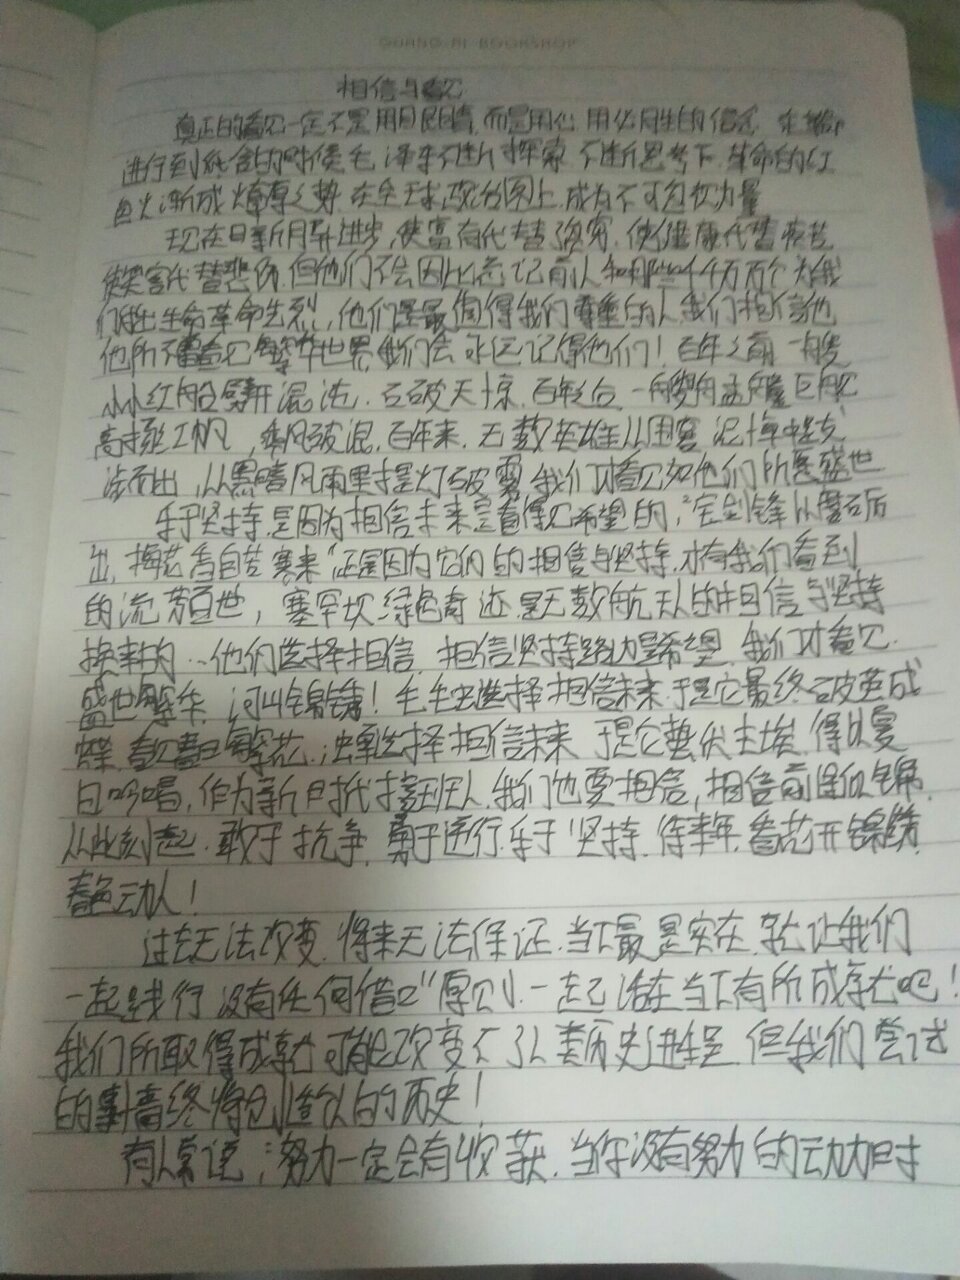 GUANG RI BOOKSHOP
相信与看见
真正的看见一定不是用眼睛,而是用心,用心用生的信念
进行到 的时候毛泽东不断探索 不断思考下,革命的红
色火渐成燎原之势,在全球政治图上,成为不可忽 力量
现在日新月异进步,使富有代替贫穷,使健康代替疾苦
使 代替悲伤,但他们不会因此忘记前人和那些千千万万个为我
们 出生命革命先烈,他们是最值得我们尊重的人,我们相信他
他所不曾看见繁华世界,我们会永远记得他们!百年之前,一艘
小小红船劈开混沌,石破天惊,百年后,一艘 巨
高扬 帆,乘风破浪,百年来,无数英雄从困
而出,从黑暗风雨里提灯破雾,我们才看见如他们所愿盛世
乐于坚持,是因为相信未来是看得见希望的,“宝剑锋从磨砺
出,梅花香自苦寒来”正是因为它们的相信与坚持,才有我们看到
的流芳百世,塞罕坝绿色奇迹是无数航天人的相信与坚持
换来的…他们选择相信,相信坚持 希望,我们才看见
盛世繁华,河山锦绣!毛毛虫选择相信未来,于是它最终破茧成
蝶,看见春日繁花;虫 选择相信未来,于是它蛰伏 ,得以夏
日吟唱,作为新时代接班人,我们也要相信,相信前 似锦,
从此刻起,敢于抗争,勇于逆行,乐于坚持,待来年,看花开锦绣,
春色动人!
过去无法改变,将来无法保证,当下最是实在,就让我们
一起践行“没有任何借口”原则,一起活在当下有所成就吧!
我们所取得成就可能改变不了人类历史进程,但我们尝试
的事 终将创造 的历史!
有人常说;努力一定会有收获,当你没有努力的动力时